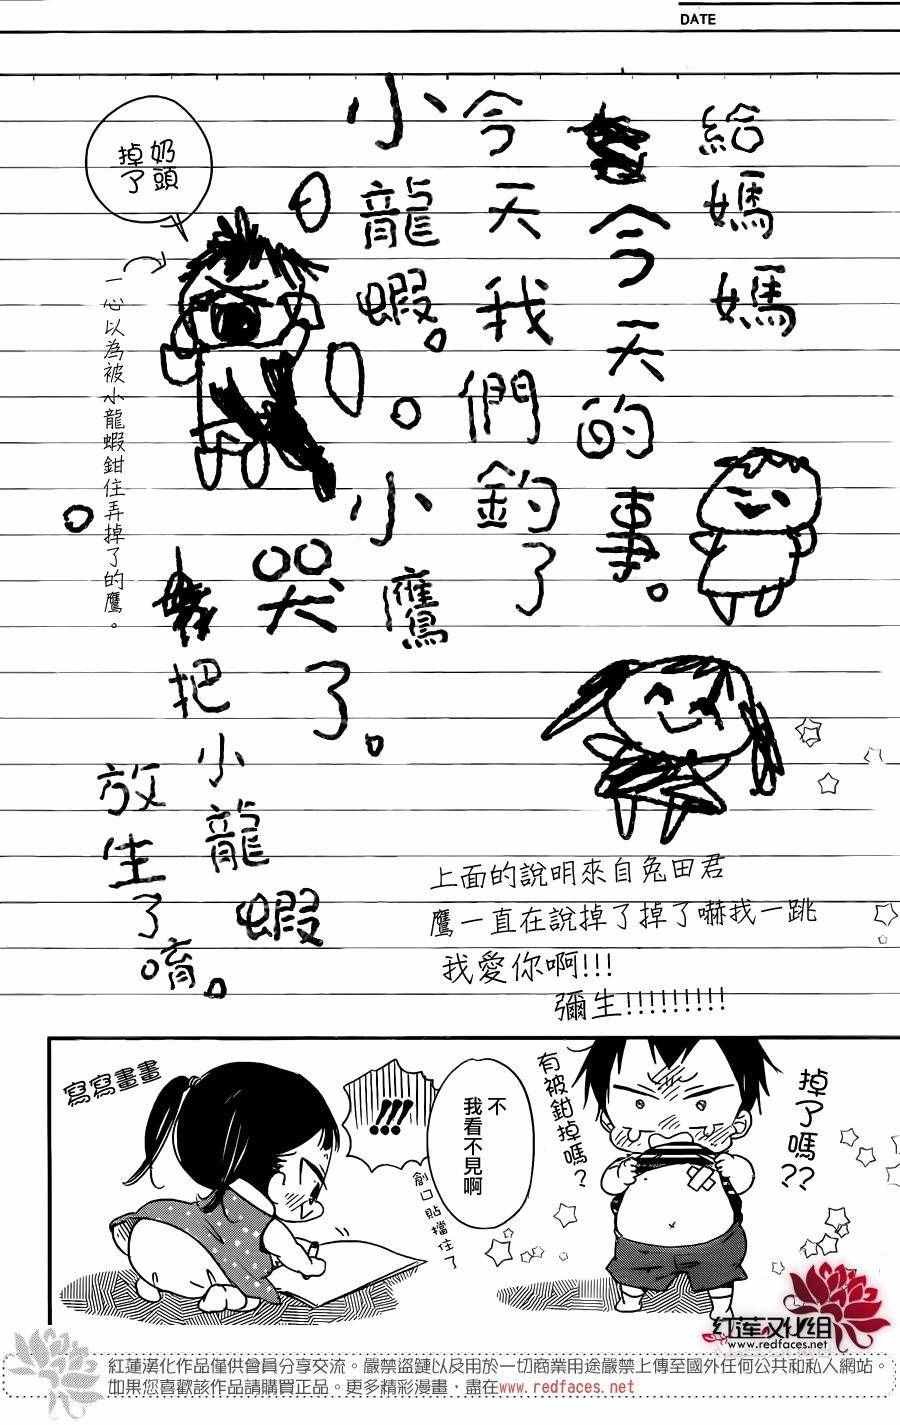 DATE
給媽媽
今天的事。
今天我們釣了
小龍蝦。
小鷹
哭了。
把小龍蝦
放生了唷。
奶頭
掉了
一心以為被小龍蝦鉗住弄掉了的鷹。
上面的說明來自兔田君
鷹一直在說掉了掉了嚇我一跳
我愛你啊!!!
彌生!!!!!!!!!
掉了嗎??
有被鉗掉嗎?
不
我看不見啊
創口貼擋住了
!!!
寫寫畫畫
紅蓮漢化組
www.redfaces.net
紅蓮漢化作品僅供會員分享交流。嚴禁盜鏈以及用於一切商業用途嚴禁上傳至國外任何公共和私人網站。
如果您喜歡該作品請購買正品。更多精彩漫畫，盡在www.redfaces.net